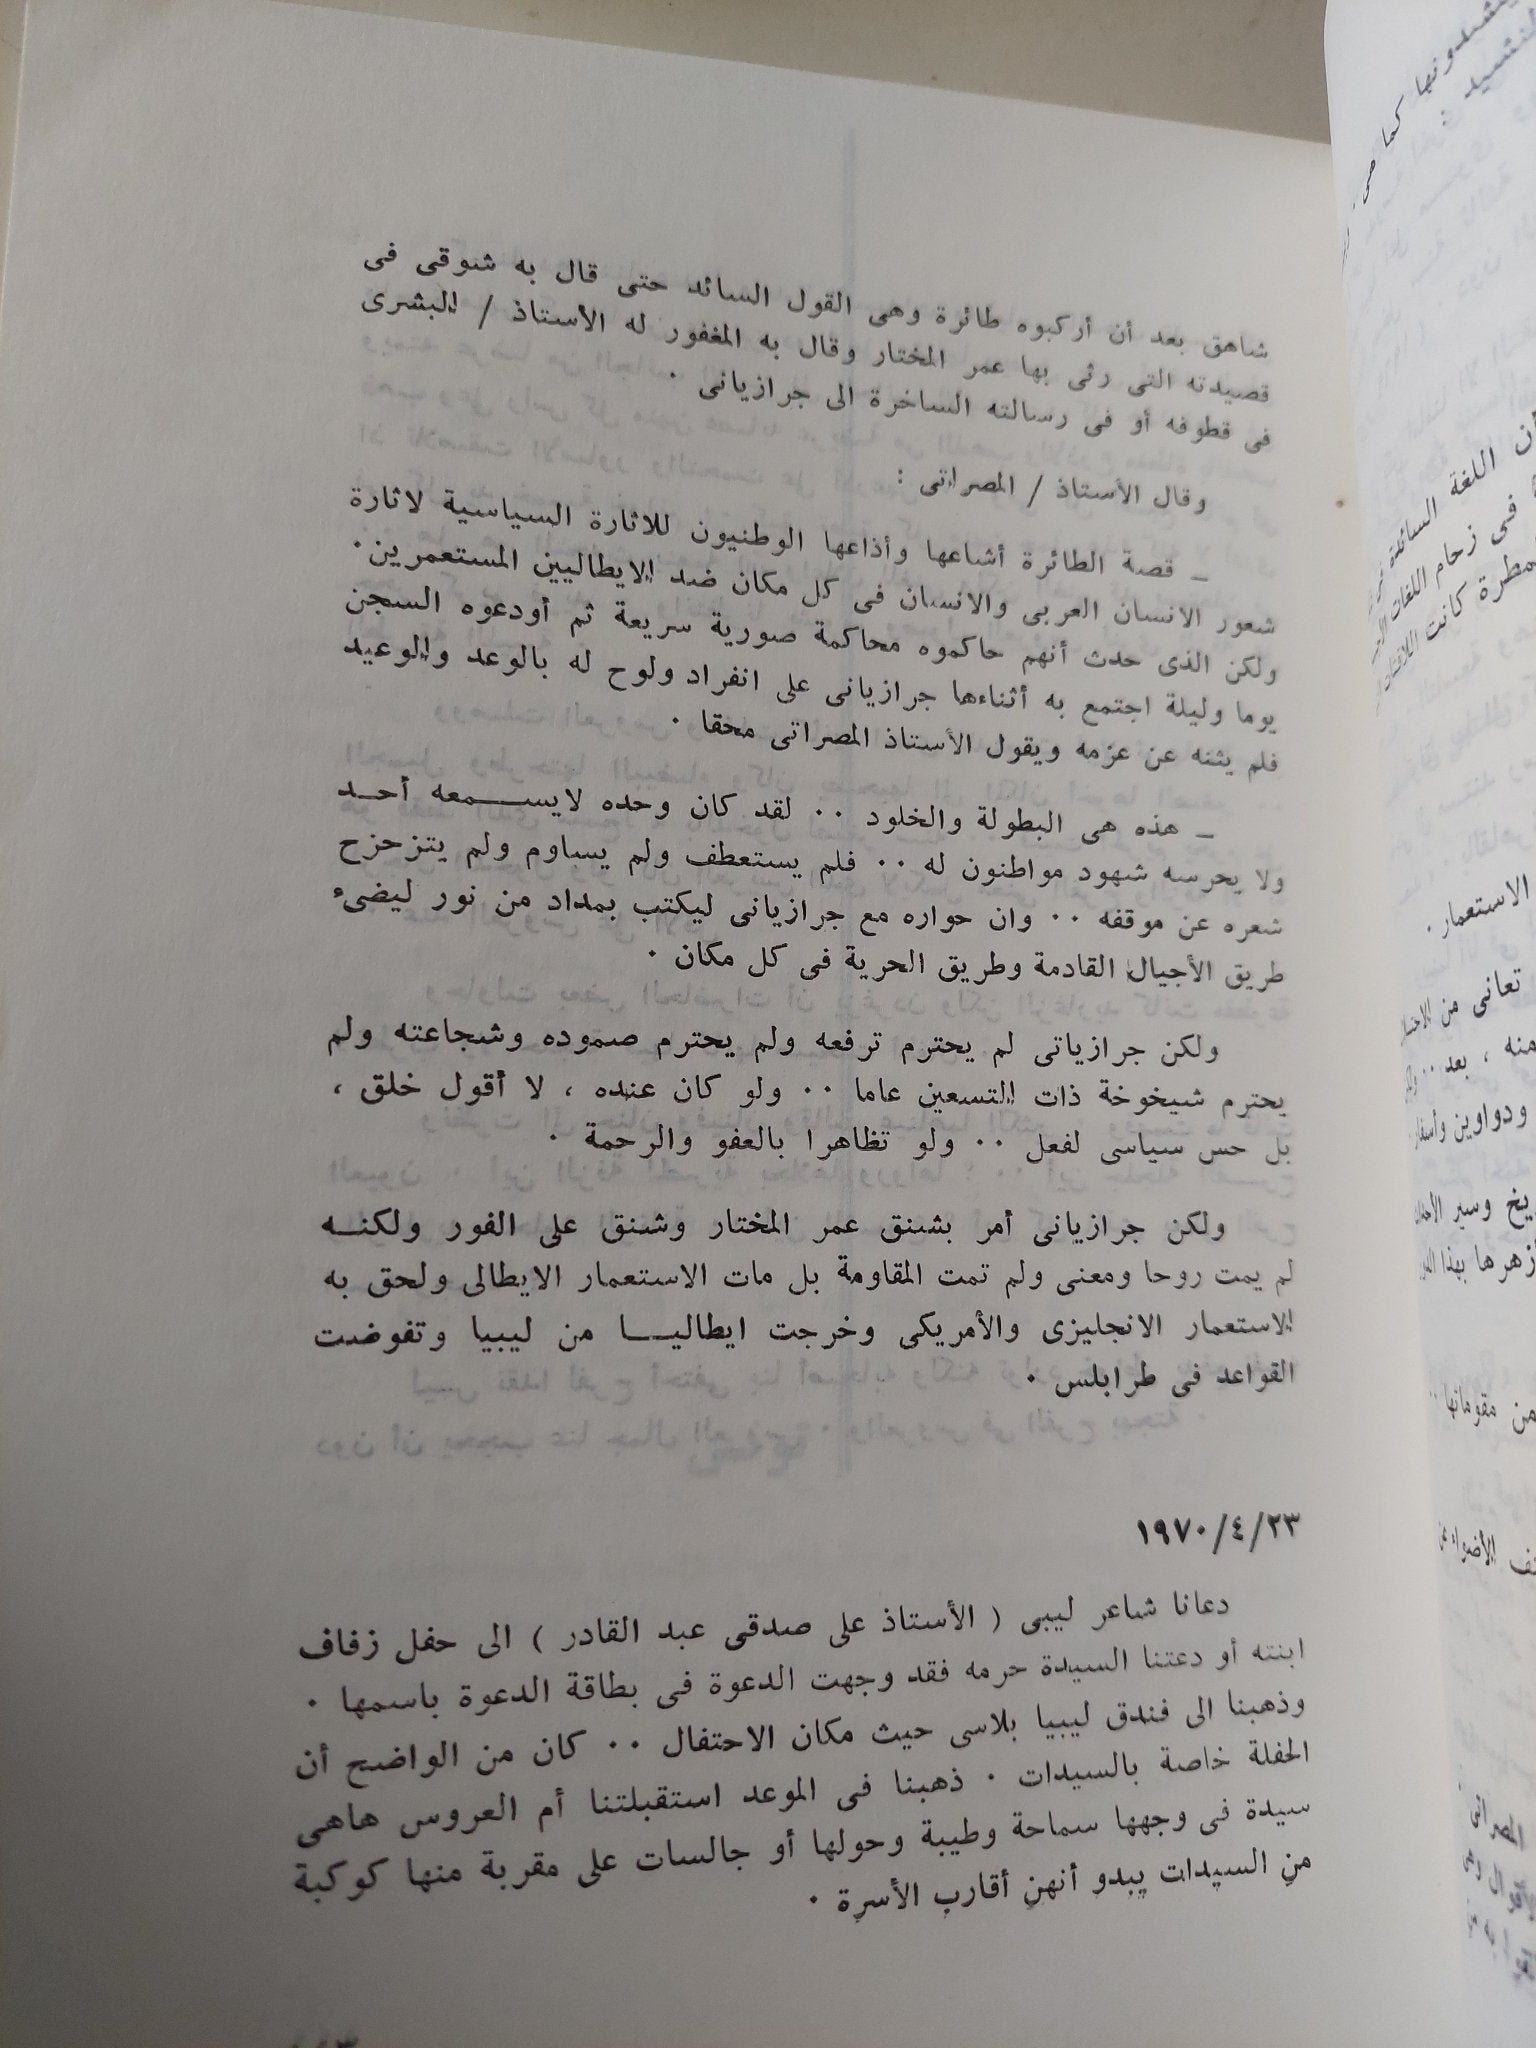 شاهق بعد أن أركبوه طائرة وهى القول السائد حتى قال به شوقى فى
قصيدته التى رثى بها عمر المختار وقال به المغفور له الأستاذ / البشرى
فى قطوفه أو فى رسالته الساخرة الى جرازيانى .
وقال الأستاذ / المصراتى :
ــ قصة الطائرة أشاعها وأذاعها الوطنيون للاثارة السياسية لاثارة
شعور الانسان العربى والانسان فى كل مكان ضد الايطاليين المستعمرين .
ولكن الذى حدث أنهم حاكموه محاكمة صورية سريعة ثم أودعوه السجن
يوما وليلة اجتمع به أثناءها جرازيانى على انفراد ولوح له بالوعد والوعيد
فلم يثنه عن عزمه ويقول الأستاذ المصراتى محقا .
ــ هذه هى البطولة والخلود .. لقد كان وحده لايســـمعه أحــد
ولا يحرسه شهود مواطنون له .. فلم يستعطف ولم يساوم ولم يتزحزح
شعره عن موقفه .. وان حواره مع جرازيانى ليكتب بمداد من نور ليضىء
طريق الأجيال القادمة وطريق الحرية فى كل مكان .
ولكن جرازياتى لم يحترم ترفعه ولم يحترم صموده وشجاعته ولم
يحترم شيخوخة ذات التسعين عاما .. ولو كان عنده ، لا أقول خلق ،
بل حس سياسى لفعل .. ولو تظاهرا بالعفو والرحمة .
ولكن جرازيانى أمر بشنق عمر المختار وشنق على الفور ولكنــه
لم يمت روحا ومعنى ولم تمت المقاومة بل مات الاستعمار الايطالى ولحق به
الاستعمار الانجليزى والأمريكى وخرجت ايطاليــــا من ليبيا وتفوضت
القواعد فى طرابلس .
١٩٧٠/٤/٢٣
دعانا شاعر ليبى ( الأستاذ على صدقى عبد القادر ) الى حفل زفاف
ابنته أو دعتنا السيدة حرمه فقد وجهت الدعوة فى بطاقة الدعوة باسمها .
وذهبنا الى فندق ليبيا بلاسى حيث مكان الاحتفال .. كان من الواضح أن
الحفلة خاصة بالسيدات . ذهبنا فى الموعد استقبلتنا أم العروس هاهى
سيدة فى وجهها سماحة وطيبة وحولها أو جالسات على مقربة منها كوكبة
من السيدات يبدو أنهن أقارب الأسرة .
أن اللغة السائدة
فى زحام اللغات
كانت اللافتات
الاستعمار .
تعانى من
منه ، بعد ..
ودواوين
وسير
أزهرها بهذا
من مقوماتها ..
الأضواء
المصراتى